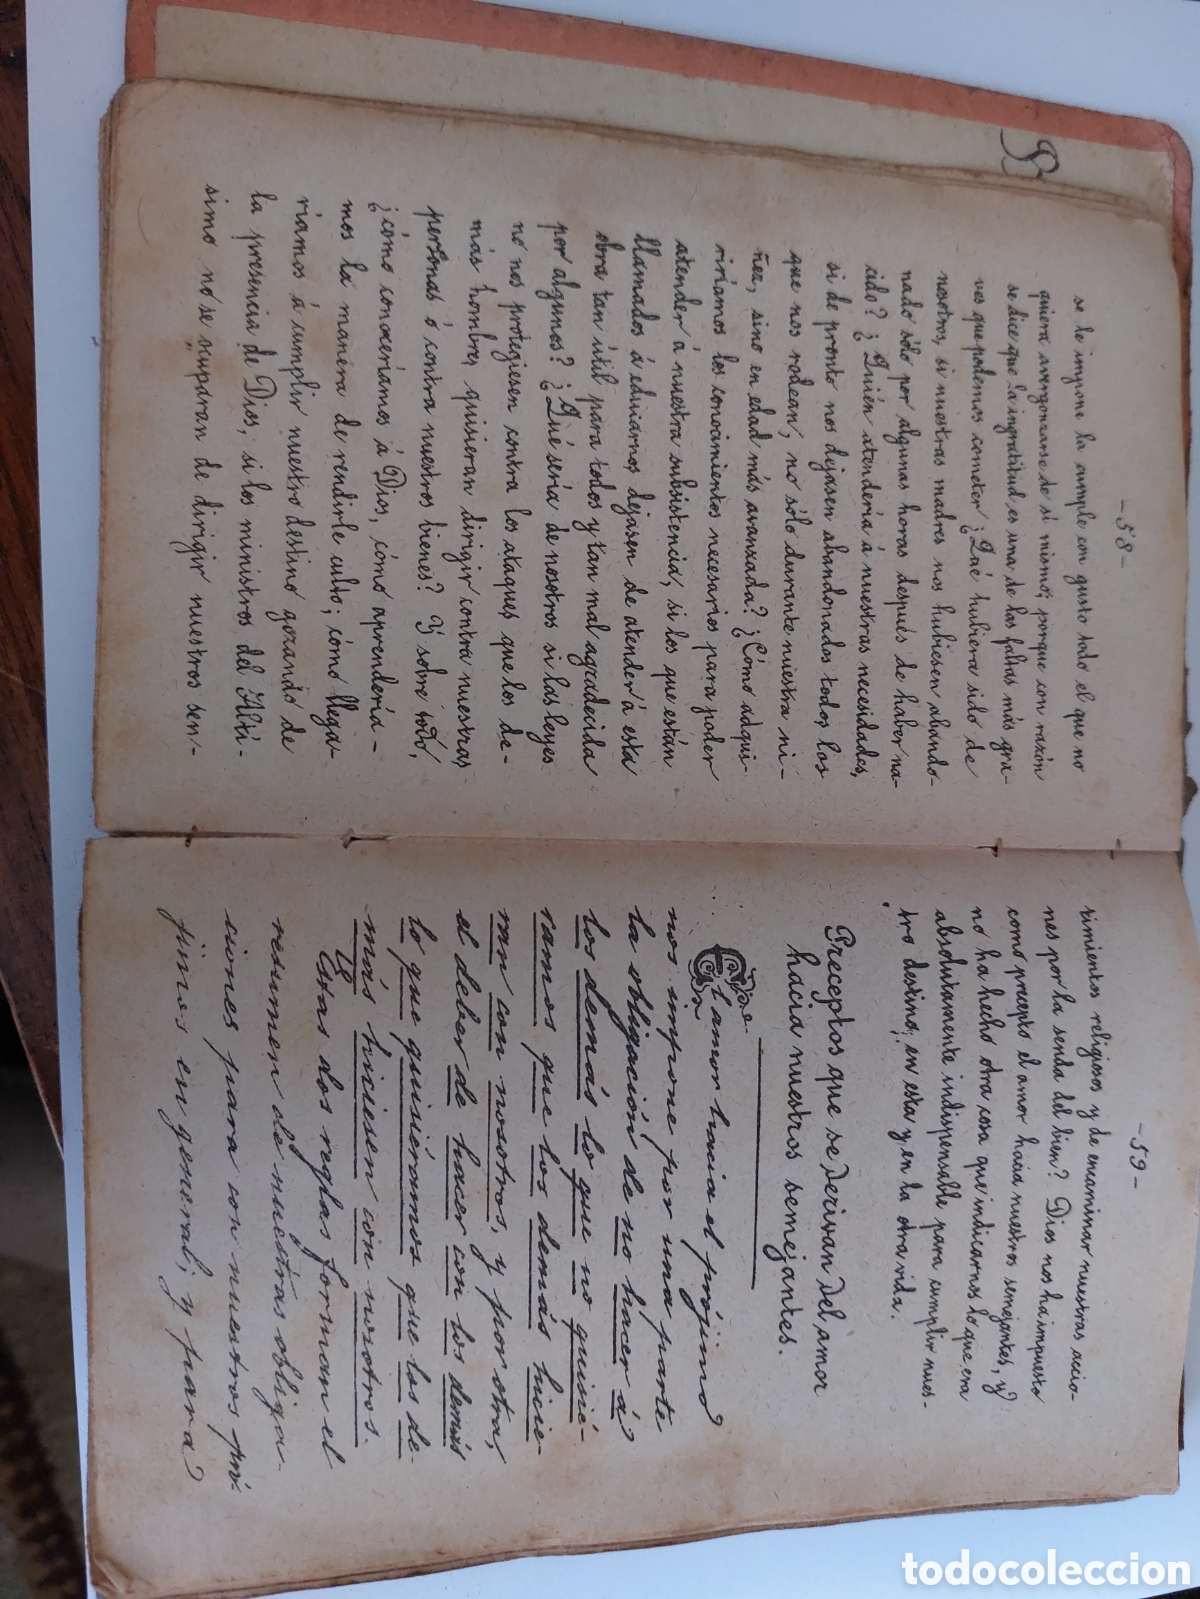 - 58 -
se le impone la cumple con gusto todo el que no
quiera avergonzarse de sí mismo; porque con razón
se dice que la ingratitud es una de las faltas más gra-
ves que podemos cometer ¿Qué hubiera sido de
nosotros, si nuestras madres nos hubiesen abando-
nado sólo por algunas horas después de haber na-
cido? ¿Quién atendería á nuestras necesidades,
si de pronto nos dejasen abandonados todos los
que nos rodean, no sólo durante nuestra ni-
ñez, sino en edad más avanzada? ¿Cómo adqui-
riríamos los conocimientos necesarios para poder
atender á nuestra subsistencia, si los que están
llamados á educarnos, dejasen de atender á esta
obra tan útil para todos y tan mal agradecida
por algunos? ¿Qué sería de nosotros si las leyes
no nos protegiesen contra los ataques que los de-
más hombres quisieran dirigir contra nuestras
personas ó contra nuestros bienes? Y sobre todo,
¿cómo conoceríamos á Dios, cómo aprendería-
mos la manera de rendirle culto; cómo llega-
ríamos á cumplir nuestro destino gozando de
la presencia de Dios, si los ministros del Altí-
simo no se ocuparan de dirigir nuestros sen-
- 59 -
timientos religiosos y de encaminar nuestras accio-
nes por la senda del bien? Dios nos ha impuesto
como precepto el amor hacia nuestros semejantes, y
no ha hecho otra cosa que indicarnos lo que era
absolutamente indispensable para cumplir nues-
tro destino, en esta y en la otra vida.
Preceptos que se derivan del amor
hacia nuestros semejantes.
El amor hacia el prójimo
nos impone por una parte
la obligación de no hacer á
los demás lo que no quisié-
ramos que los demás hicie-
ran con nosotros, y por otra,
el deber de hacer con los demás
lo que quisiéramos que los de-
más hiciesen con nosotros.
Estas dos reglas forman el
resumen de nuestras obliga-
ciones para con nuestros pró-
jimos en general; y para
todocoleccion